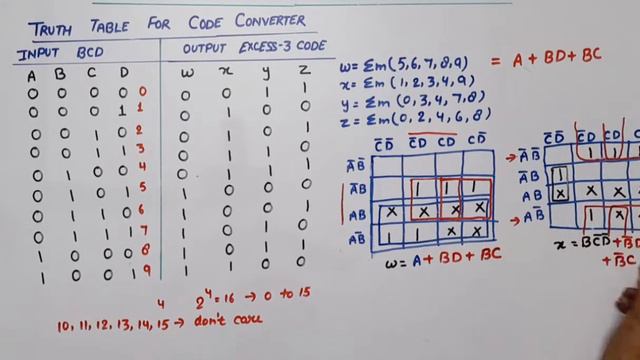 TRUTH TABLE FOR CODE CONVERTER
INPUT BCD OUTPUT EXCESS-3 CODE
A B C D w x y z
0 0 0 0 0 0 0 1 1
0 0 0 1 1 0 1 0 0
0 0 1 0 2 0 1 0 1
0 0 1 1 3 0 1 1 0
0 1 0 0 4 0 1 1 1
0 1 0 1 5 1 0 0 0
0 1 1 0 6 1 0 0 1
0 1 1 1 7 1 0 1 0
1 0 0 0 8 1 0 1 1
1 0 0 1 9 1 1 0 0
4 2⁴=16 → 0 to 15
10, 11, 12, 13, 14, 15 → don't care
w = Σm(5,6,7,8,9) = A + BD + BC
x = Σm(1,2,3,4,9)
y = Σm(0,3,4,7,8)
z = Σm(0,2,4,6,8)
C̅D̅ C̅D CD CD̅
A̅B̅
A̅B 1 1 1
AB X X X X
AB̅ 1 1 X X
w = A + BD + BC
C̅D̅ C̅D CD C
→ A̅B̅ 1 1
A̅B 1
AB X X X
→ AB̅ 1 X
x = BC̅D̅ + B̅D
+ B̅C